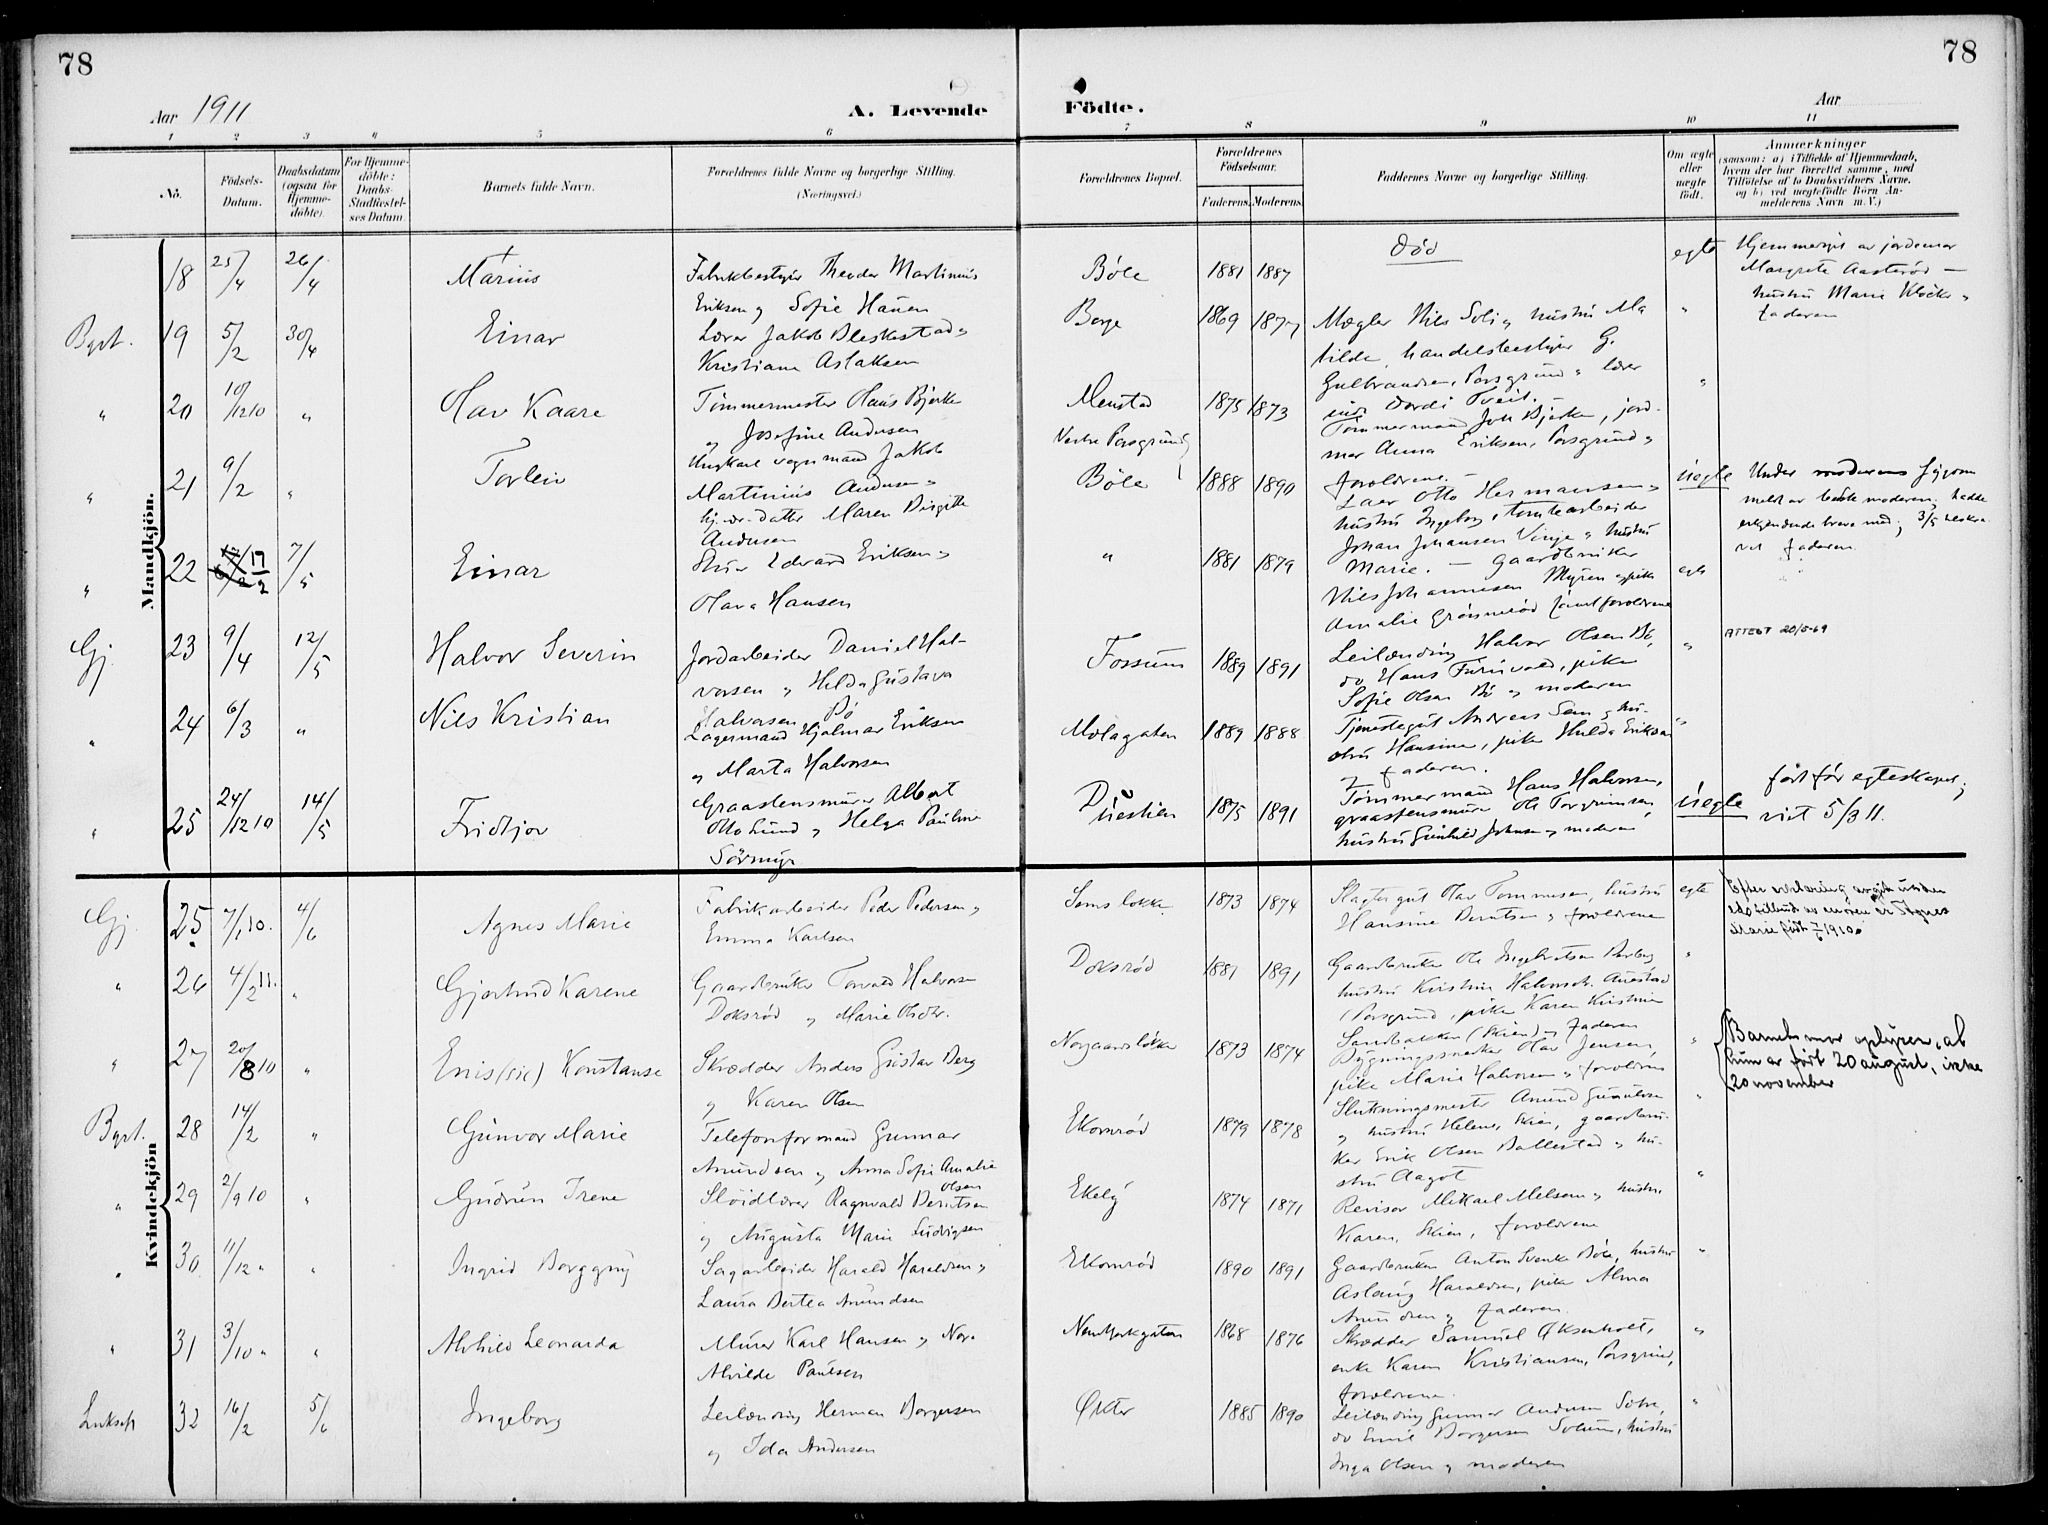 78
78
Aar 1911
A. Levende
Födte.
Aar
1 2 3 4 5 6 7 8 9 10 11
No.
Födsels-Datum.
Daabsdatum (ogsaa for Hjemme-döbte).
For Hjemme-döbte: Daabs-Stadfæstel-ses Datum
Barnets fulde Navn.
Forældrenes fulde Navne og borgerlige Stilling.
(Næringsvei.)
Forældrenes Bopæl.
Forældrenes Födselsaar.
Faderens. Moderens.
Faddernes Navne og borgerlige Stilling.
Om ægte eller uægte födt.
Anmærkninger
(saasom: a) i Tilfælde af Hjemmedaab,
hvem der har forrettet samme, med
Tilföielse af to Daabsvidners Navne,
og b) ved uægtefödte Börn An-
melderens Navn m. V.)
Mandkjön.
18 25/4 26/4 Marius
Fabrikbestyrer Theodor Martinius
Eriksen og Sofie Hansen
Bøle 1881 1887
Død
egte
Hjemmedøpt av jordemor
Margrete Aasterød —
hustru Marie Klocke
faderen
Bpst. 19 5/2 30/4 Einar
Lærer Jakob Bleskestad
Kristiane Aslaksen
Borge 1869 1877
Mægler Nils Soli, hustru Ma
tilde, handelsbestyrer G.
Gulbrandsen, Porsgrund, lærer
inde Bordi Tveit. —
" 20 10/12 10 " Olav Kaare
Tømmermester Olaus Bjerke
og Josefine Andersen
Menstad
Vestre Porsgrund
1875 1873
Tømmermand Joh Bjerke, jord-
mor Anna Eriksen, Porsgrund
forældrene. —
" 21 9/2 " Torleiv
Ungkarl vognmand Jakob
Martinius Andersen
hj. v. datter Maren Birgitte
Andersen
Bøle 1888 1890
Laer Otto Hermansen
hustru Ingeborg, tomtearbeider
Johan Johansen Vinje hustru
Marie. —
uegte
Under moderens
meldt av moderen; hadde
erkjendende breve med; 3/5
faderen
" 22 17/2 7/5 Einar
Skuer Edvard Eriksen
Olava Hansen
" 1881 1879
Gaardbruker
Nils Johannesen Myren pike
Amalie Grønnerød samt forældrene
egte
Gj. 23 9/4 12/5 Halvor Severin
Jordarbeider Daniel Hal-
vorsen og Hilda Gustava
Halvorsen Bø
Fossum 1889 1891
Leilænding Halvor Olsen Bø,
do Hans Furuvald, pike
Sofie Olsen Bø og moderen
"
ATTEST 20/5-69
" 24 6/3 " Nils Kristian
Lagermand Hjalmar Eriksen
og Marta Halvorsen
Mølagaten 1889 1888
Tjenestegut Andreas Sem, hu-
stru Hansine, pike Hulda Eriksen
og faderen.
"
" 25 24/12 10 14/5 Fridtjov
Graastensmurer Albert
Otto Lund og Helga Pauline
Sørmyr
Duestien 1875 1891
Tømmermand Hans Halvorsen,
graastensmurer Ole Torgrimsen,
hustru Gunhild Johnsen, moderen
uegte
født før egteskapet;
viet 5/3 11.
Kvindekjön
Gj. 25 7/1 10. 4/6 Agnes Marie
Fabrikarbeider Peder Pedersen
Emma Karlsen
Sems løkke 1873 1874
Slagtergut Olav Tommesen, hustru
Hansine Berntsen og forældrene
egte
Efter erklæring
av moren er Agnes
Marie født 1910.
" 26 4/2 11. " Gjertrud Karene
Gaardbruker Torvald Halvorsen
Doksrød og Marie Olsdtr.
Doksrød 1881 1891
Gaardbruker Ole Ingebretsen Borberg
hustru Kirstine Halvorsdtr.
(Porsgrund, pike Karen Kirstine
Sandbakken (Skien) og faderen
"
" 27 20/8 10 " Enis (sic) Konstanse
Skrædder Anders Gustav Berg
og Karen Olsen
Norgaardsløkke 1873 1874
Bygningssnekker Olav Jensen
pike Marie Halvorsen, forældrene
"
Barnets mor oplyser, at
hun er født 20 august, ikke
20 november
Bpst. 28 14/2 " Gunvor Marie
Telefonformand Gunnar
Amundsen og Anna Sofie Amalie
Olsen
Ekornrød 1879 1878
Slutningsmester Amund
og hustru Helene, Skien, gaardbru-
ker Erik Olsen Ballestad, hu-
stru Aagot
"
" 29 2/9 10 " Gudrun Irene
Sløidlærer Ragnvald Berntsen
og Augusta Marie Ludvigsen
Ekely 1874 1871
Revisor Mikael Melsom, hustru
Karen, Skien, forældrene
"
" 30 11/12 " " Ingrid Borggny
Sagarbeider Harald Haraldsen
Laura Bertea Amundsen
Ekornrød 1890 1891
Gaardbruker Anton Svenke Bøle, hustru
Aslaug Haraldsen, pike Alma
Amundsen, faderen.
"
" 31 3/10 " " Alvhild Leonarda
Murer Karl Hansen og Nora
Alvilde Paulsen
Newyorkgaten 1868 1876
Skrædder Samuel Øksenholt,
enke Karen Kristiansen, Porsgrund,
forældrene.
"
Luksefj 32 16/2 5/6 Ingeborg
Leilænding Herman Borgersen
og Ida Andersen
Økter 1885 1890
Leilænding Gunnar Andersen
do Emil Borgersen Solum, hustru
Inga Olsen, moderen
"